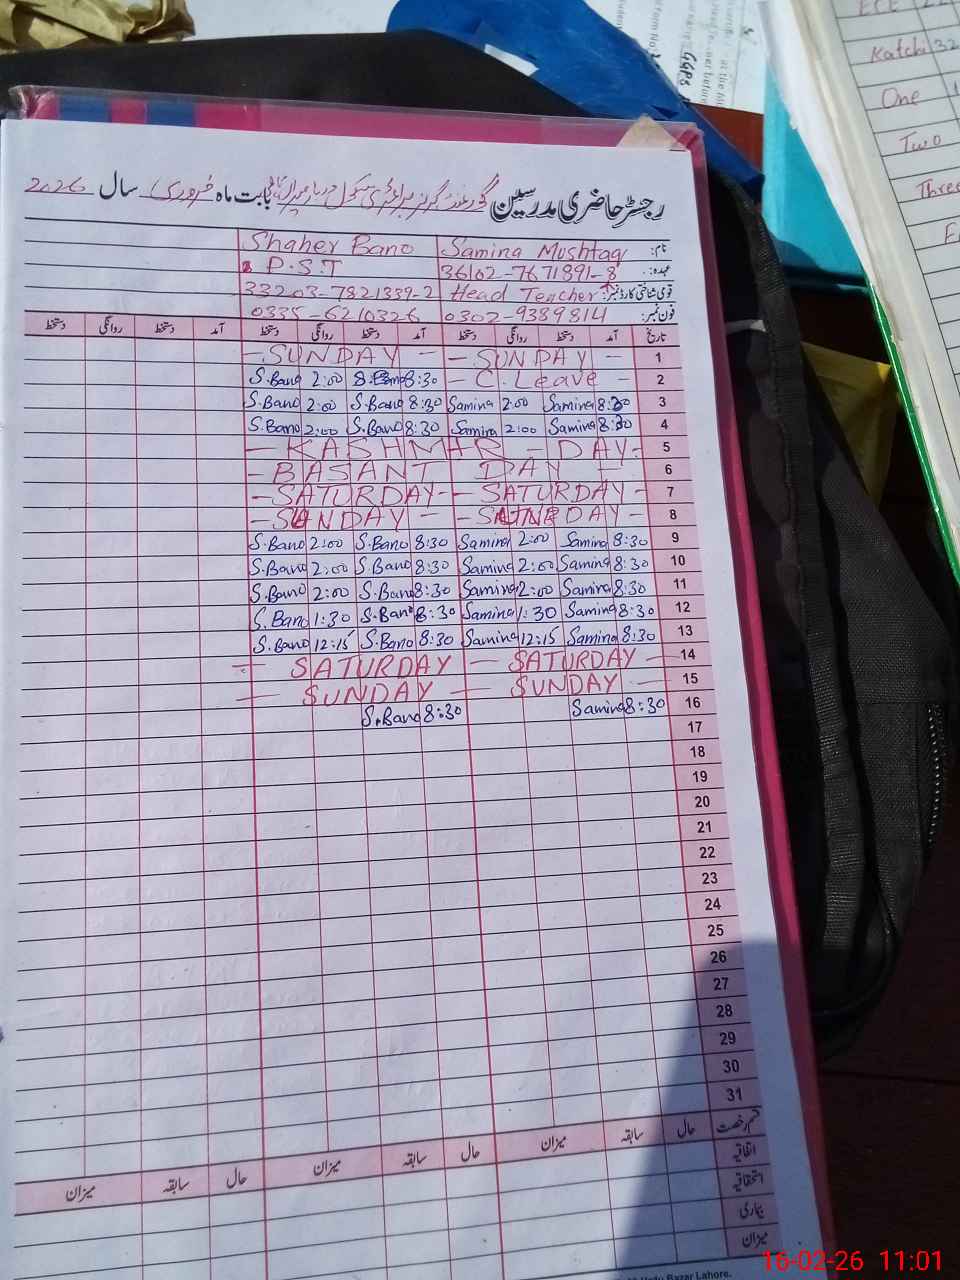 رجسٹر حاضری مدرسین گورنمنٹ گرلز پرائمری سکول بابت ماہ فروری سال 2026
Shaher Bano Samina Mushtaq نام:
P.S.T 36102-7671891-8 عہدہ:
33203-7821339-2 Head Teacher قومی شناختی کارڈ نمبر:
0335-6210326 0302-9389814 فون نمبر:
دستخط روانگی دستخط آمد دستخط روانگی دستخط آمد دستخط روانگی دستخط آمد تاریخ
- SUNDAY - - SUNDAY - 1
S.Bano 2:00 S.Bano 8:30 - C.Leave - 2
S.Bano 2:00 S.Bano 8:30 Samina 2:00 Samina 8:30 3
S.Bano 2:00 S.Bano 8:30 Samina 2:00 Samina 8:30 4
- KASHMIR - DAY - 5
- BASANT DAY - 6
- SATURDAY - - SATURDAY - 7
- SUNDAY - - SUNDAY - 8
S.Bano 2:00 S.Bano 8:30 Samina 2:00 Samina 8:30 9
S.Bano 2:00 S.Bano 8:30 Samina 2:00 Samina 8:30 10
S.Bano 2:00 S.Bano 8:30 Samina 2:00 Samina 8:30 11
S.Bano 1:30 S.Bano 8:30 Samina 1:30 Samina 8:30 12
S.Bano 12:15 S.Bano 8:30 Samina 12:15 Samina 8:30 13
- SATURDAY - SATURDAY - 14
- SUNDAY - SUNDAY - 15
S.Bano 8:30 Samina 8:30 16
17
18
19
20
21
22
23
24
25
26
27
28
29
30
31
میزان سابقہ حال میزان سابقہ حال میزان سابقہ حال قسم رخصت
اتفاقیہ
استحقاقیہ
بیماری
میزان
Urdu Bazar Lahore.
ECE
Katchi 32
One
Two
Three
GGPS
16-02-26 11:01